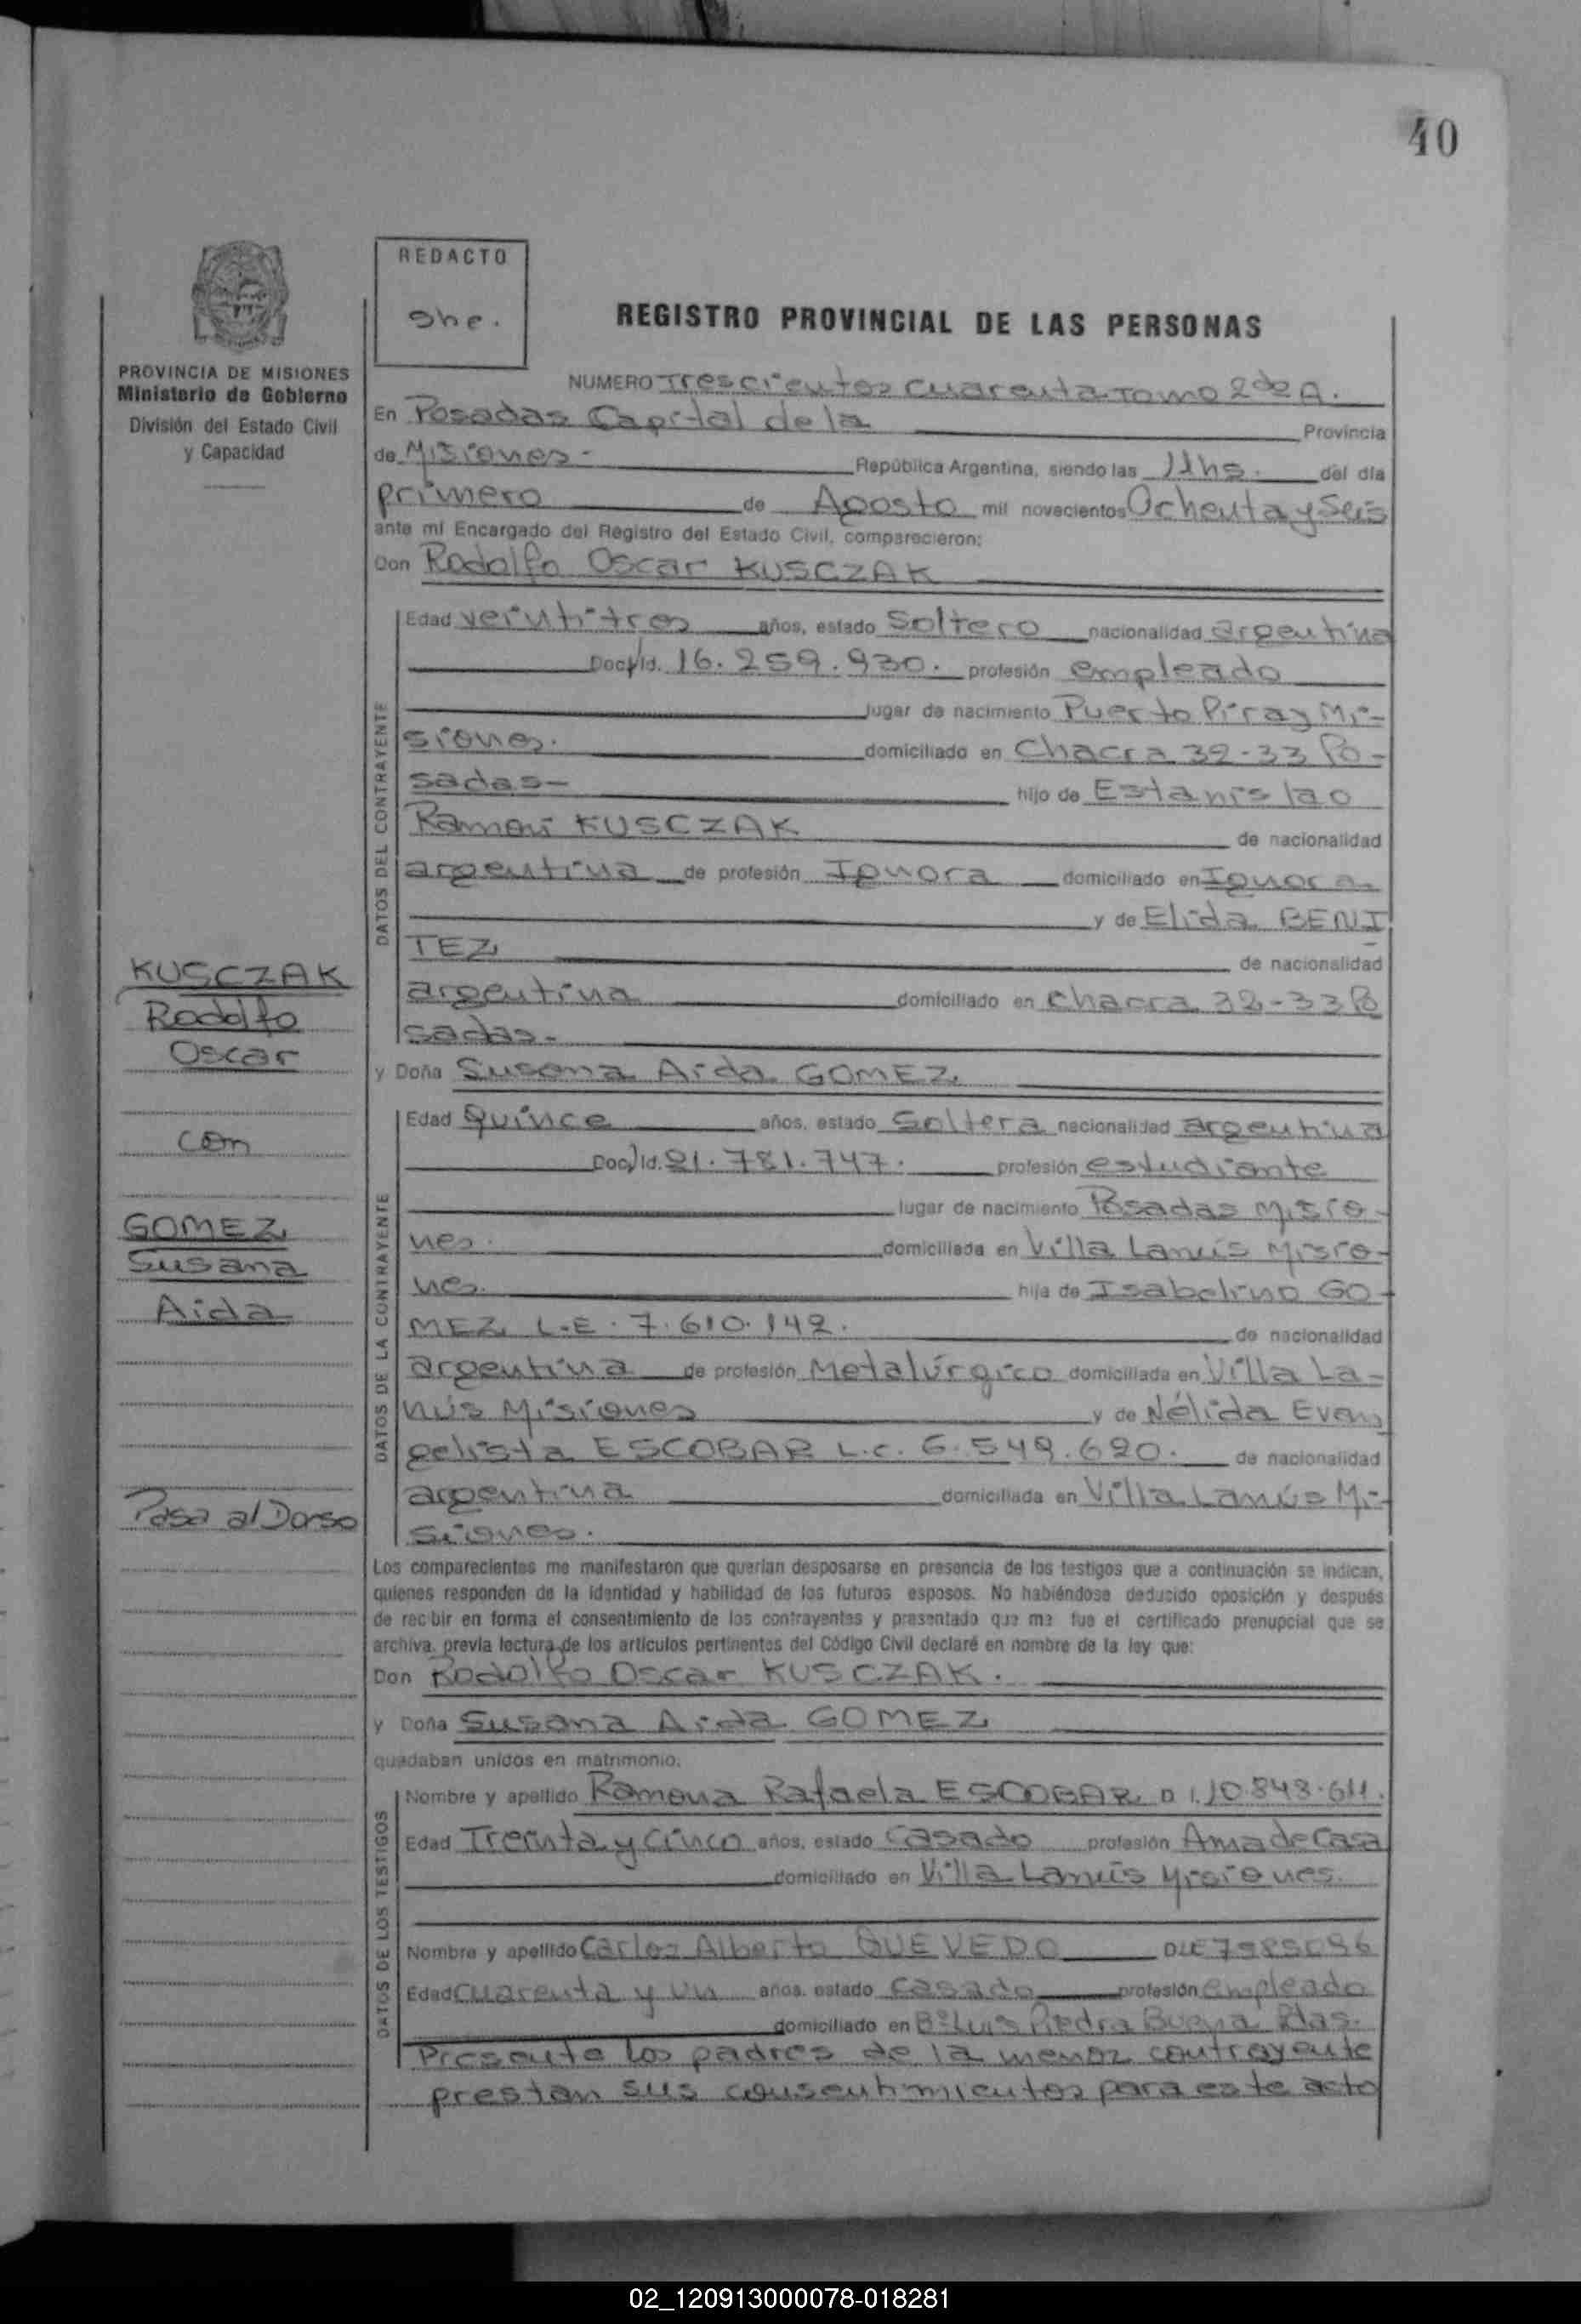 40
REDACTO
She.
REGISTRO PROVINCIAL DE LAS PERSONAS
PROVINCIA DE MISIONES
Ministerio de Gobierno
División del Estado Civil
y Capacidad
NUMERO Trescientos cuarenta Tomo 2do A.
En Posadas Capital de la Provincia
de Misiones - República Argentina, siendo las 11hs. del día
primero de Agosto mil novecientos Ochenta y Seis
ante mi Encargado del Registro del Estado Civil, comparecieron:
Don Rodolfo Oscar KUSCZAK
DATOS DEL CONTRAYENTE
Edad veintitres años, estado Soltero nacionalidad argentina
Doc/Id. 16.259.930. profesión empleado
lugar de nacimiento Puerto Piray Mi-
siones. domiciliado en Chacra 32-33 Po-
sadas- hijo de Estanislao
Ramon KUSCZAK de nacionalidad
argentina de profesión Ignora domiciliado en Ignora.
y de Elida BENI
TEZ de nacionalidad
argentina domiciliado en chacra 32-33 Po
sadas-
y Doña Susana Aida GOMEZ
DATOS DE LA CONTRAYENTE
Edad Quince años, estado Soltera nacionalidad argentina
Doc/Id. 21.781.747. profesión estudiante
lugar de nacimiento Posadas Misio-
nes. domiciliada en Villa Lanús Misio-
nes. hija de Isabelino GO-
MEZ L.E. 7.610.142. de nacionalidad
argentina de profesión Metalúrgico domiciliada en Villa La-
nús Misiones y de Nélida Evan
gelista ESCOBAR L.c. 6.549.620. de nacionalidad
argentina domiciliada en Villa Lanús Mi-
siones.
Los comparecientes me manifestaron que querían desposarse en presencia de los testigos que a continuación se indican,
quienes responden de la identidad y habilidad de los futuros esposos. No habiéndose deducido oposición y después
de recibir en forma el consentimiento de los contrayentes y presentado que me fue el certificado prenupcial que se
archiva, previa lectura de los artículos pertinentes del Código Civil declaré en nombre de la ley que:
Don Rodolfo Oscar KUSCZAK.
y Doña Susana Aida GOMEZ
quedaban unidos en matrimonio.
DATOS DE LOS TESTIGOS
Nombre y apellido Ramona Rafaela ESCOBAR D.I. 10.848.611.
Edad Treinta y Cinco años, estado Casado profesión Ama de Casa
domiciliado en Villa Lanús Misiones.
Nombre y apellido Carlos Alberto QUEVEDO
Edad cuarenta y un años, estado casado profesión empleado
domiciliado en Bº Luis Piedra Buena Pdas.
Presente los padres de la menor contrayente
prestan sus consentimientos para este acto
KUSCZAK
Rodolfo
Oscar
con
GOMEZ
Susana
Aida
Pasa al Dorso
02_120913000078-018281